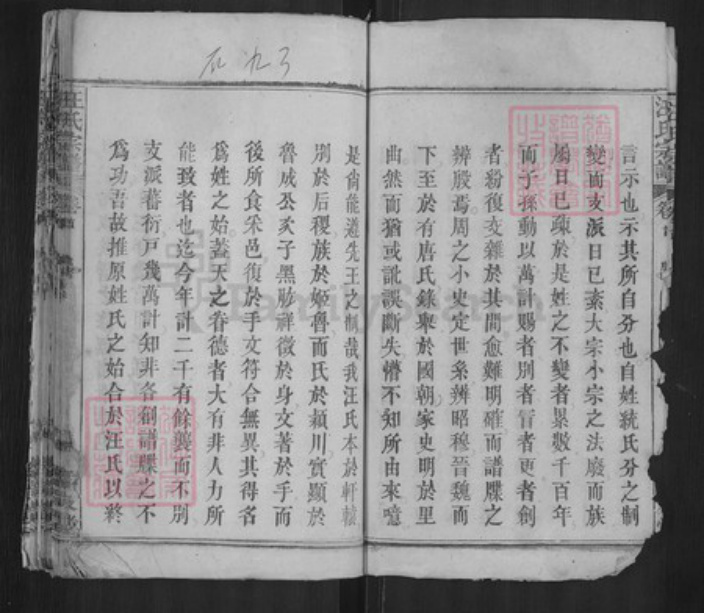 言示也示其所自分也自姓統氏分之制
變而支派日已紊大宗小宗之法廢而族
屬日已踈於是姓之不變者累數千百年
而子孫動以萬計賜者別者冒者更者創
者紛復交雜於其間愈難明確而譜牒之
辨殷焉周之小史定世系辨昭穆晉魏而
下至於有唐氏錄舉於國朝家史明於里
曲然而猶或訛誤斷失懵不知所由來噫
是尚能遵先王之制哉我汪氏本於軒轅
別於后稷族於姬魯而氏於潁川實顯於
魯成公次子黑肱祥徵於身文著於手而
後所食采邑復於手文符合無異其得名
為姓之始蓋天之眷德者大有非人力所
能致者也迄今年計二千有餘襲而不別
支派蕃衍戸幾萬計知非各創譜牒之不
為功吾故推原姓氏之始合於汪氏以終
汪氏宗譜
FamilySearch